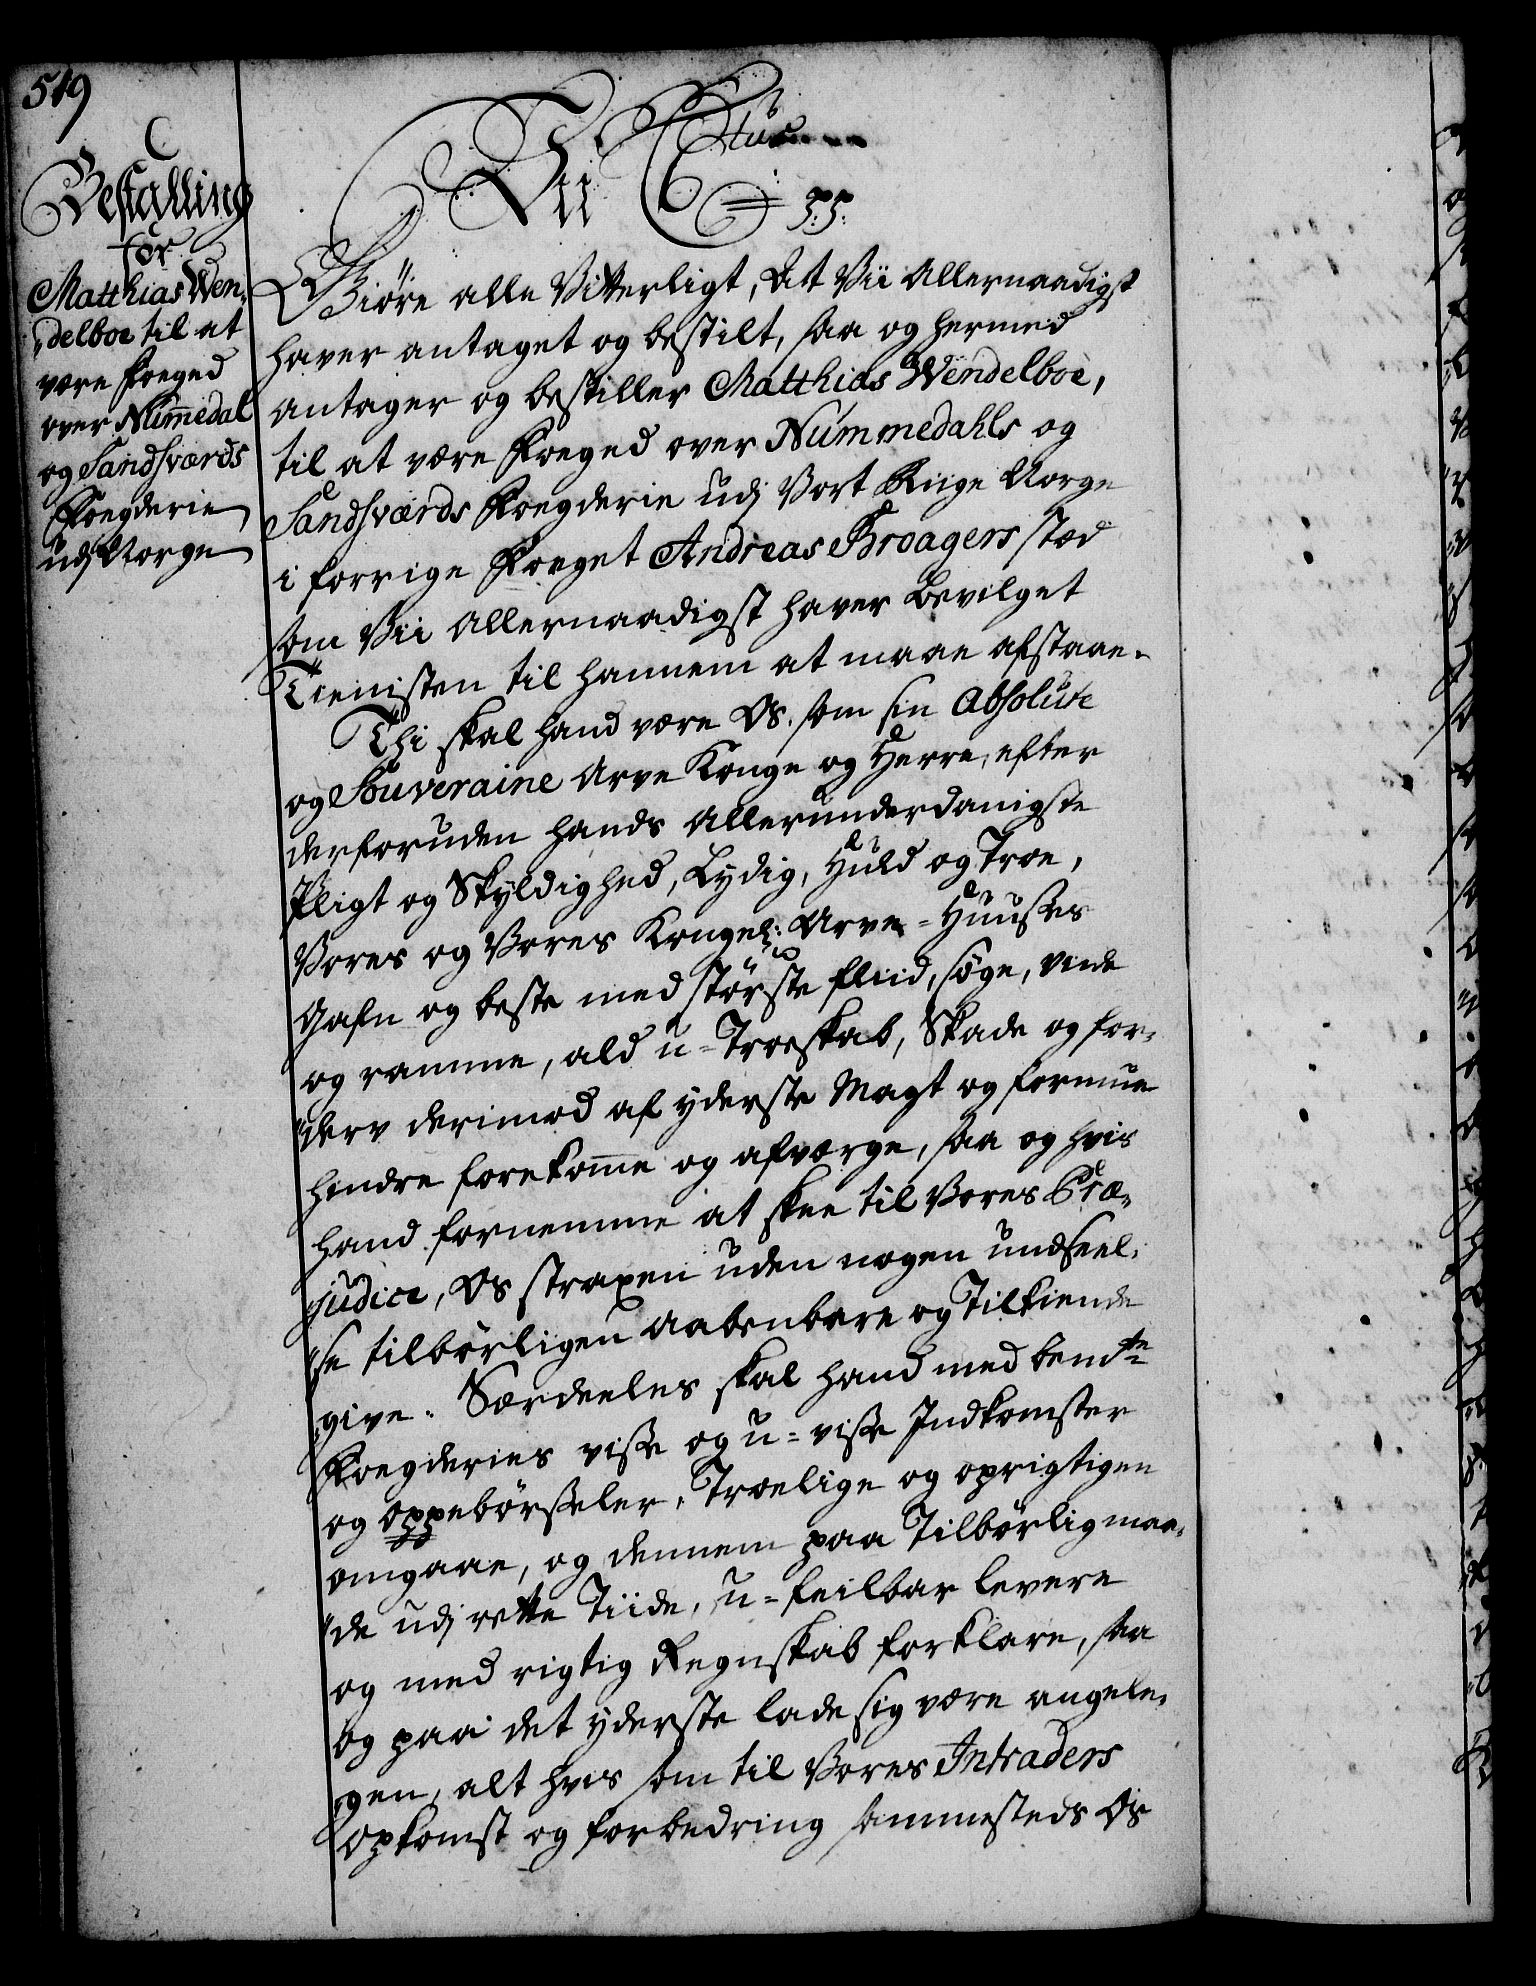 519
Bestalling
for
Matthias Wen-
delboe til at
være Foeged
over Nummedal
og Sandsværds
Foegderie
udj Norge
Vii C
tus
p.p.
Giöre alle Vitterligt, At Vii Allernaadigst
haver antaget og bestilt, saa og hermed
antager og bestiller Matthias Wendelboe,
til at være Foeged over Nummedahls og
Sandsværds Foegderie udj Vort Riige Norge
i forrige Foeget Andreas Broagers stæd
som Vii Allernaadigst haver bevilget
Tienisten til hannem at maae afstaae.
Thi skal hand være Os. som sin Absolute
og Souveraine Arve Konge og Herre, efter
derforuden hands Allerunderdanigste
Pligt og Skyldighed, Lydig, Huld og Troe,
Vores og Vores Kongel: Arve-Huusses
Gafn og beste med störste fliid, söge, vide
og ramme, ald u-Troeskab, Skade og for-
derv derimod af yderste Magt og formue
hindre forekomme og afværge, saa og hvis
hand fornemme at skee til Vores Præ-
judice, Os straxen uden nogen undseel-
se tilbörligen Aabenbare og Tilkiende
give. Særdeeles skal hand med bemte
Foegderies visse og u-visse Indkomster
og Oppebörsseler, Troelige og oprigtigen
omgaae, og dennem paa Tilbörlig maa-
de udj rette Tiide, u-feilbar levere
og med rigtig Regnskab forklare, saa
og paa det yderste lade sig være angele-
gen, alt hvis som til Vores Intraders
Opkomst og forbedring sammesteds Os